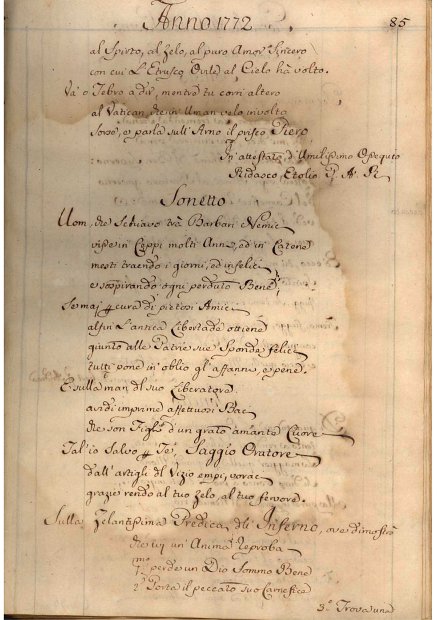 Anno 1772
85
al Spirto, al Zelo, al puro Amor Sincero
con cui l'Etrusco Ovile al Cielo hà volto.
Và o Tebro a dir, mentre tu corri altero
al Vatican, che in Uman velo involto
sorse, e parla sull'Arno il prisco Piero
In attestato d'Umilissimo Ossequio
Ridasco Etolio P. A.
Sonetto
Uom, che Schiavo trà Barbari Nemici
visse in Ceppi molti Anni, ed in Catene
mesti traendo i giorni, ed infelici
e sospirando ogni perduto Bene,
Se mai p cura di pietosi Amici
alfin l'antica Libertade ottiene
giunto alle Patrie sue Sponde felici
tutti pone in oblio gl'affanni, e pene.
E sulla man del suo Liberatore
avidi imprime affettuosi Baci
che son Figli d'un grato amante Cuore
Tal'io Salvo p Te, Saggio Oratore
dall'artigli del Vizio empi, voraci
grazie rendo al tuo Zelo, al tuo fervore.
Sulla Zelantissima Predica, dell'Inferno, ove dimostrò
che ivi un'Anima Reproba
1mo perde un Dio Sommo Bene
2o Porta il peccato suo Carnefice
3o Trova una